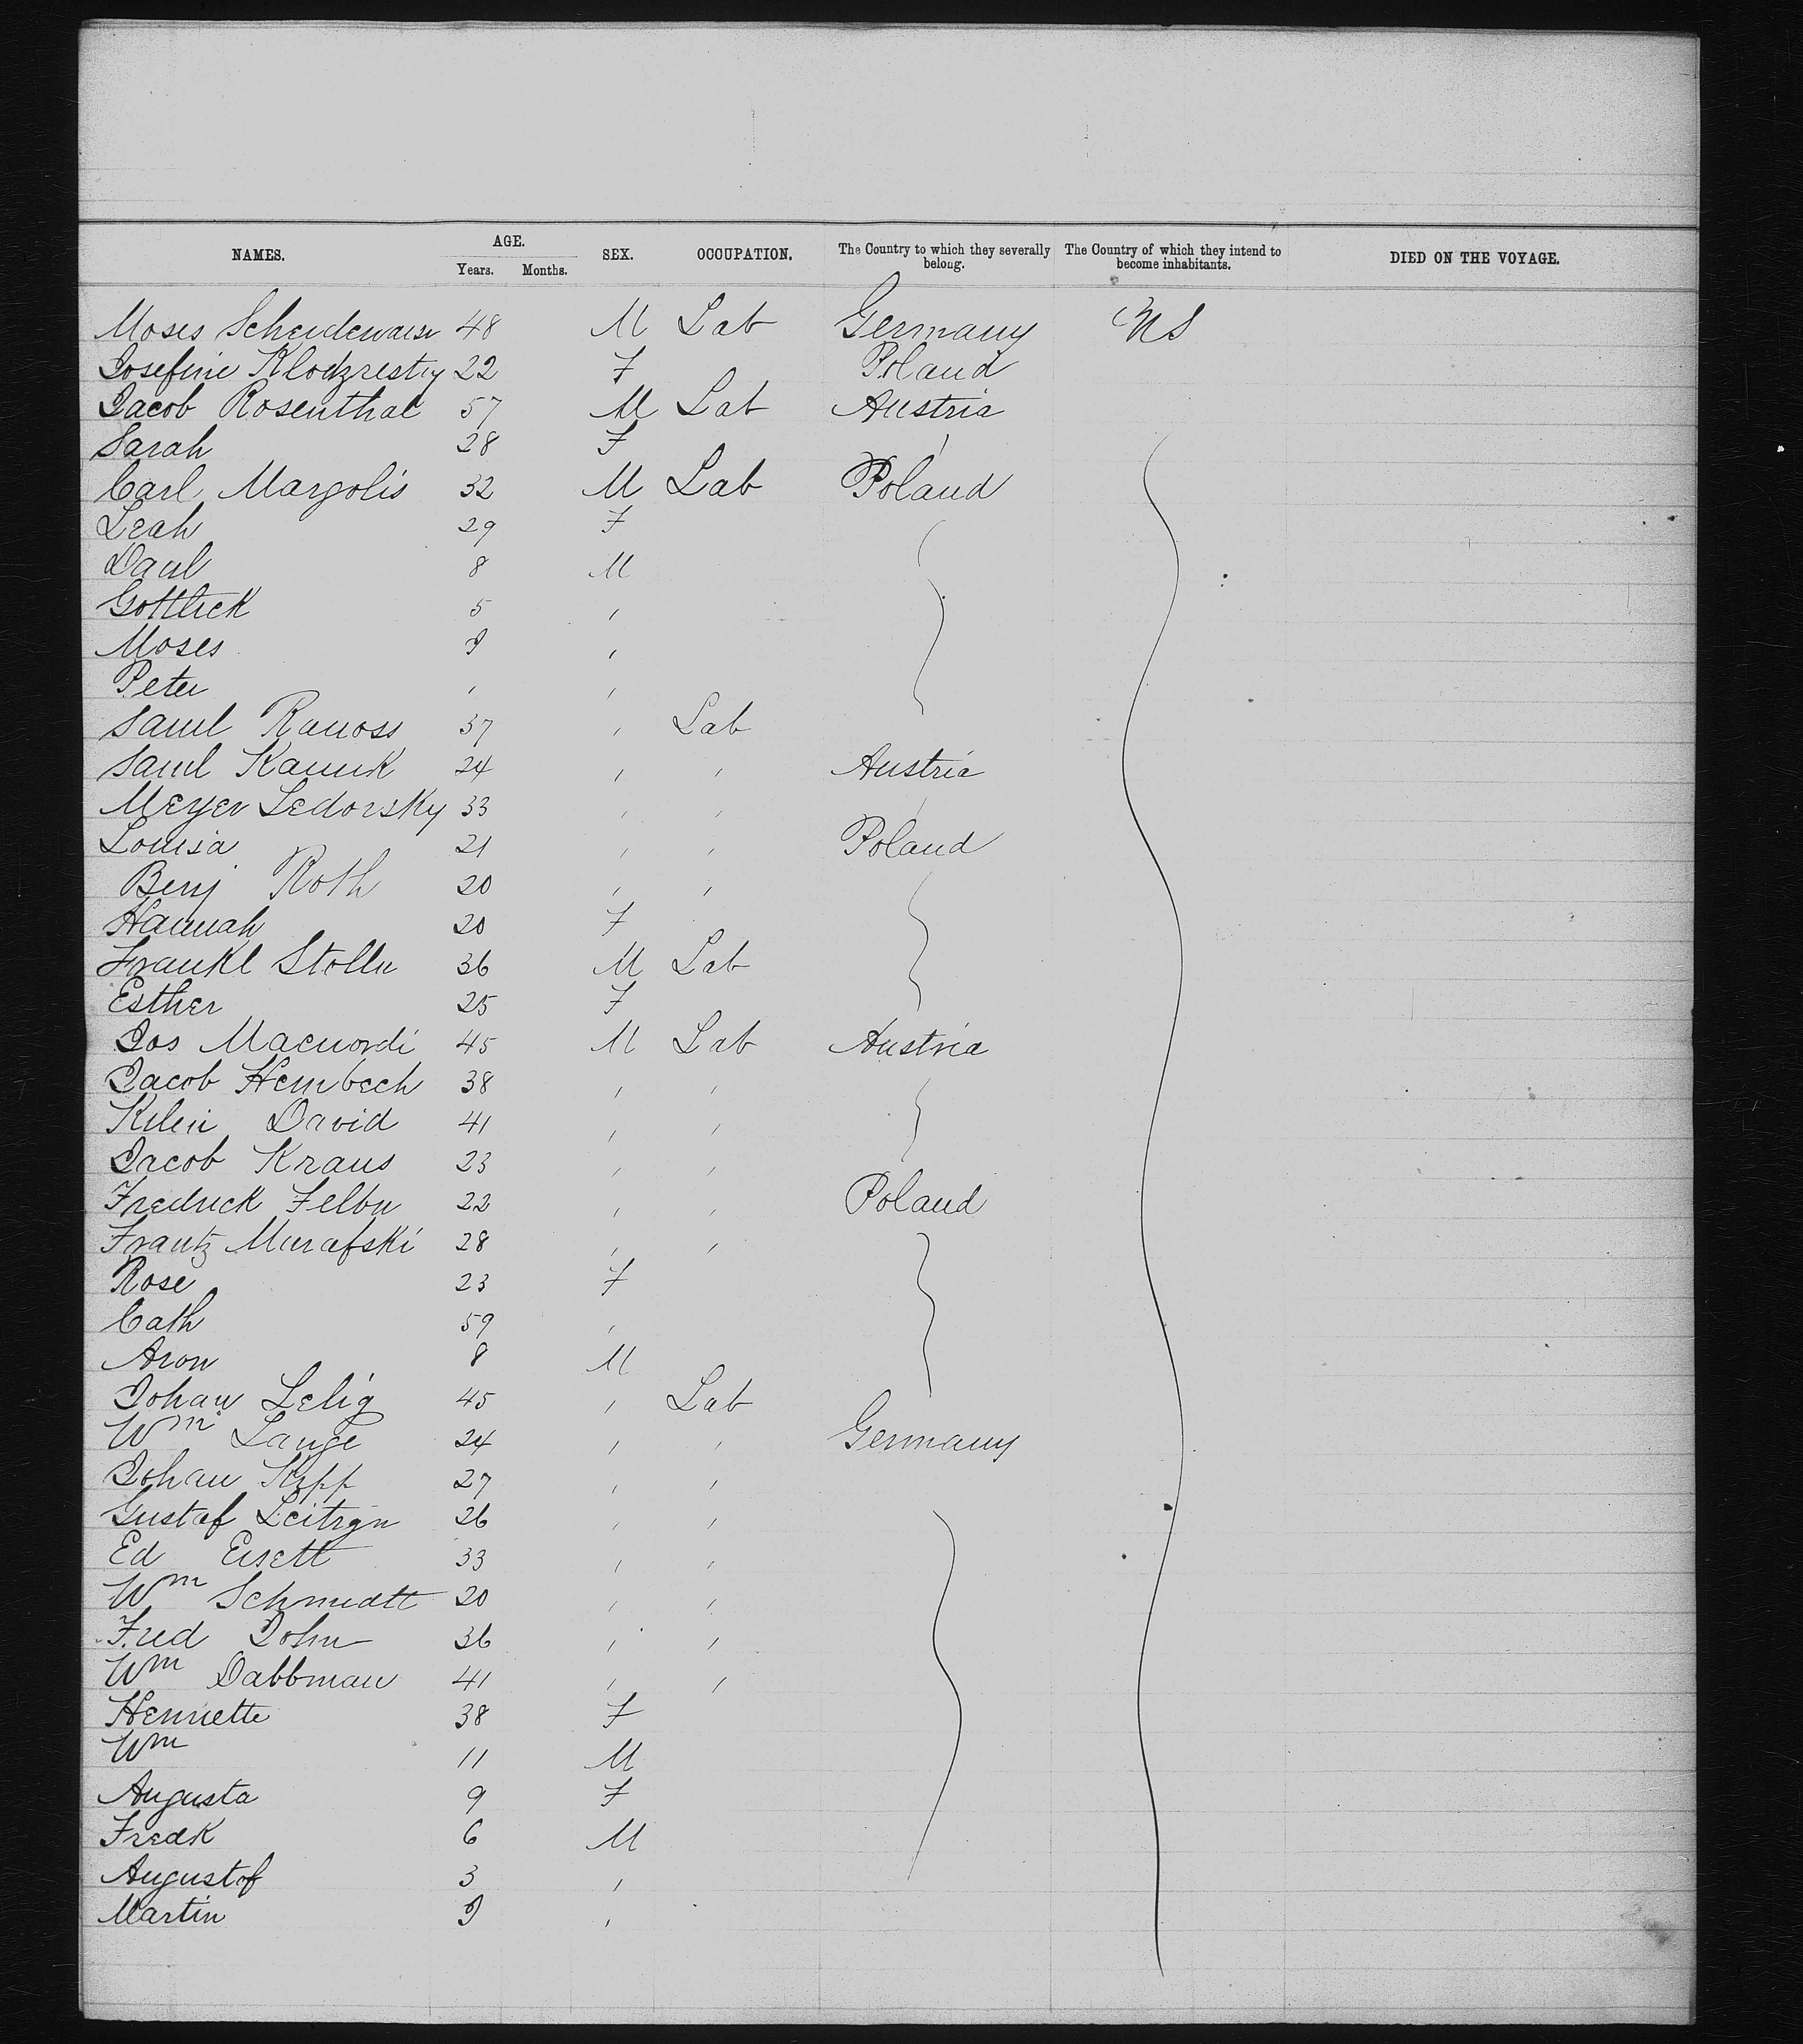 NAMES. AGE. SEX. OCCUPATION. The Country to which they severally belong. The Country of which they intend to become inhabitants. DIED ON THE VOYAGE.
Years. Months.
Moses 48 M Lab Germany US
Josefine 22 F Poland
Jacob Rosenthal 57 M Lab Austria
Sarah 28 F "
Carl Margolis 32 M Lab Poland
Leah 29 F
Saul 8 M
Gottlick 5 "
Moses "
Peter " "
Saml Ranoss 37 " Lab
Saml Kamuk 24 " " Austria
Meyer Ledorsky 33 " " "
Louisa 21 " " Poland
Benj Roth 20 " "
Hannah 20 F
Frankl Stoller 36 M Lab
Esther 25 F
Jos Macuordi 45 M Lab Austria
Jacob Hembech 38 " "
Klein David 41 " "
Jacob Kraus 23 " "
Fredrick Felber 22 " " Poland
Frantz Murafski 28 " "
Rose 23 F
Cath 59 "
Aron 8 M
Johan Lelig 45 " Lab
Wm Lange 24 " " Germany
Johan Kipp 27 " "
Gustaf 26 " "
Ed Eisett 33 " "
Wm Schmidtt 20 " "
Fred John 36 " "
Wm Dabbman 41 " "
Henriette 38 F
Wm 11 M
Augusta 9 F
Fredk 6 M
Augustof 3 "
Martin "